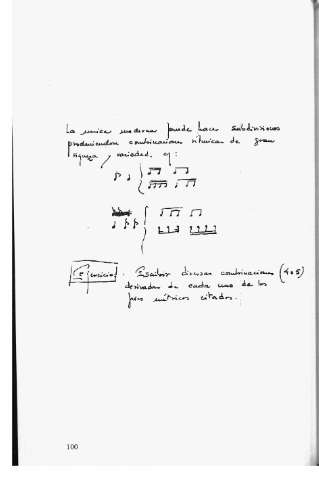 La musica moderna puede hacer subdivisiones
produciendose combinaciones rítmicas de gran
riqueza y variedad. ej:
Ejercicio. Escribir diversas combinaciones (4 o 5)
derivadas de cada uno de los
pies métricos citados.
100